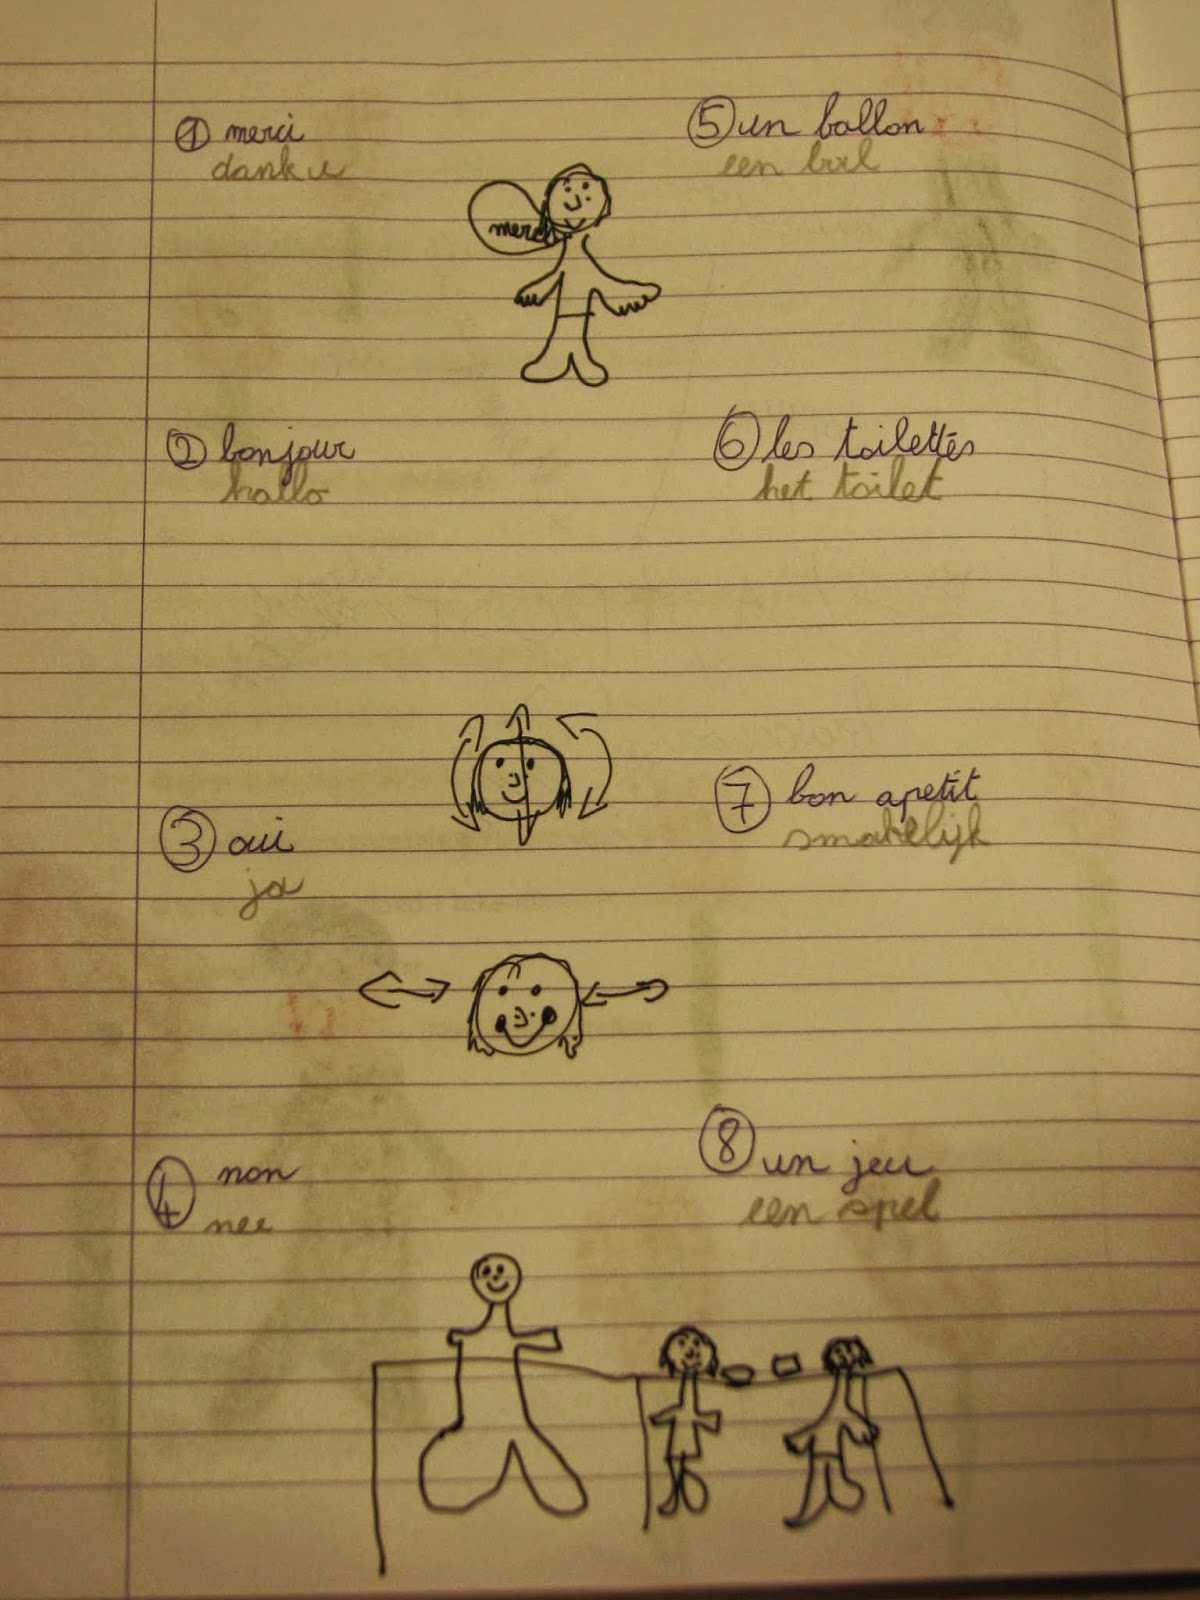 1 merci
dank u
merci
2 bonjour
hallo
3 oui
ja
4 non
nee
5 un ballon
een bal
6 les toilettes
het toilet
7 bon apetit
smakelijk
8 un jeu
een spel